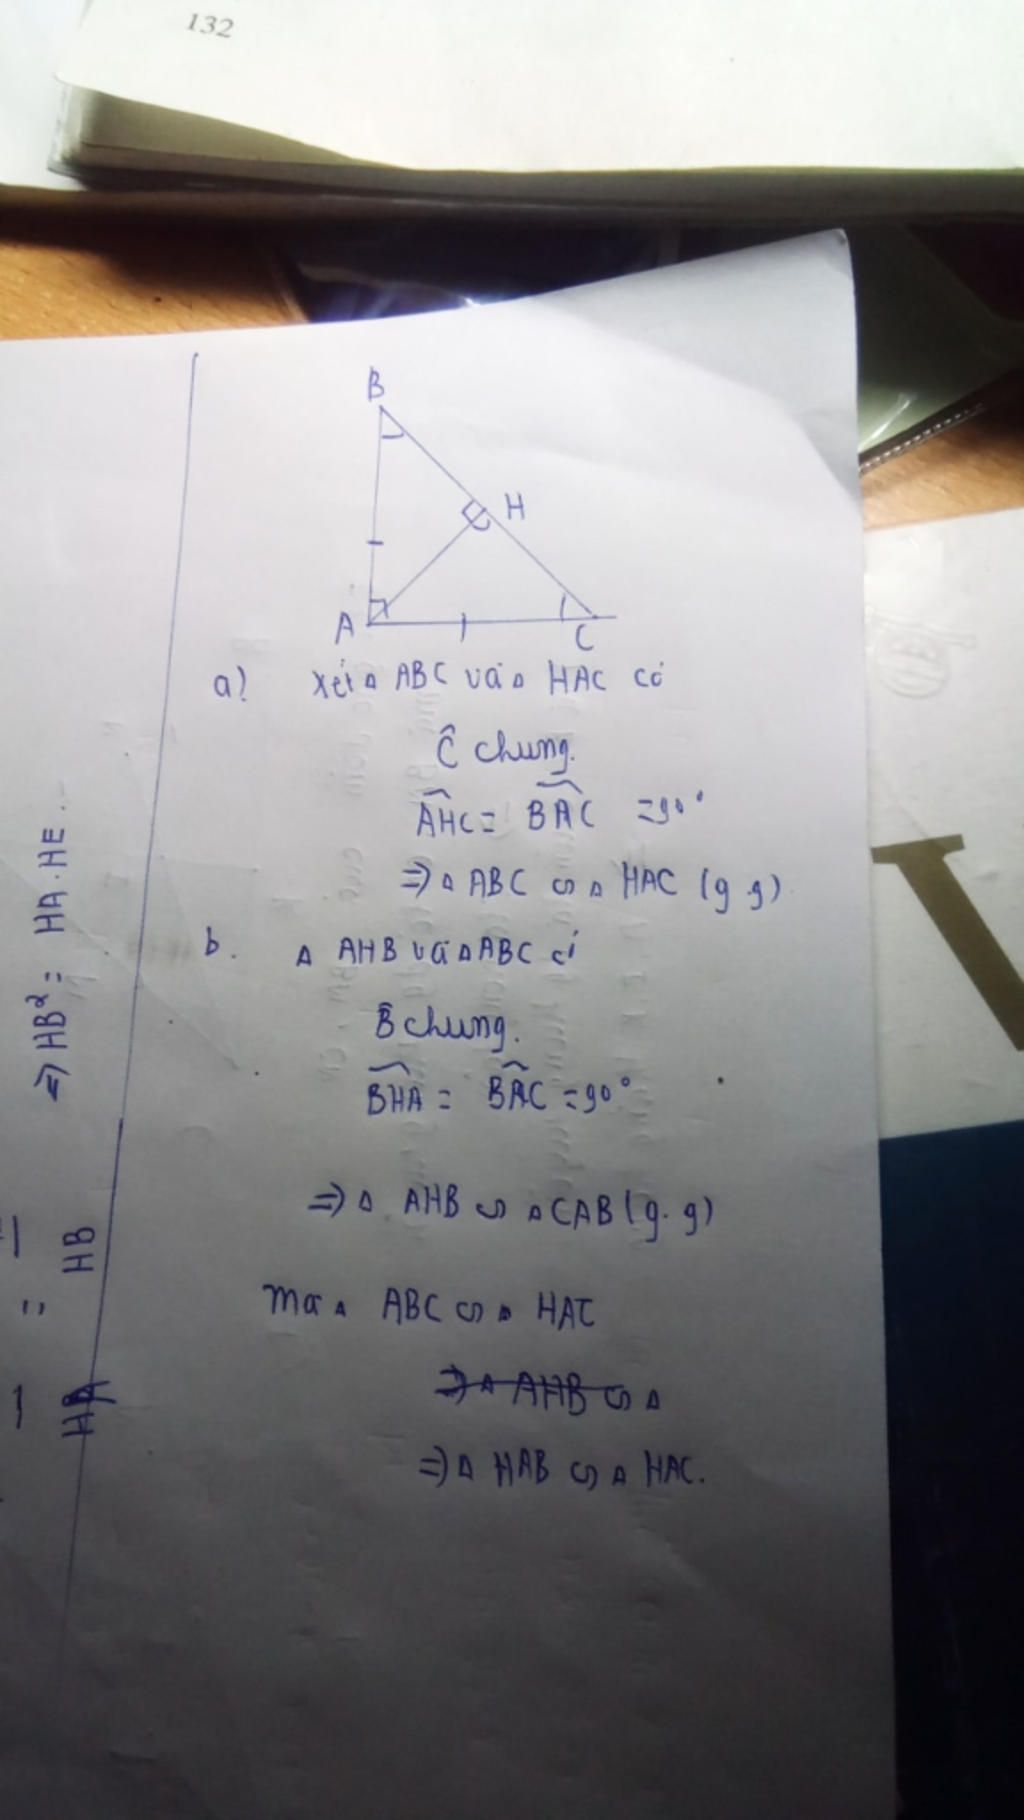 132
B
H
A
C
a) Xét △ ABC và △ HAC có
Ĉ chung.
AHC = BAC = 90°
⇒ △ ABC ∽ △ HAC (g.g)
b. △ AHB và △ ABC có
B̂ chung.
BHA = BAC = 90°
⇒ △ AHB ∽ △ CAB (g.g)
mà △ ABC ∽ △ HAC
⇒ △ AHB ∽ △
⇒ △ HAB ∽ △ HAC.
⇒ HB² = HA.HE
HA
=
HB